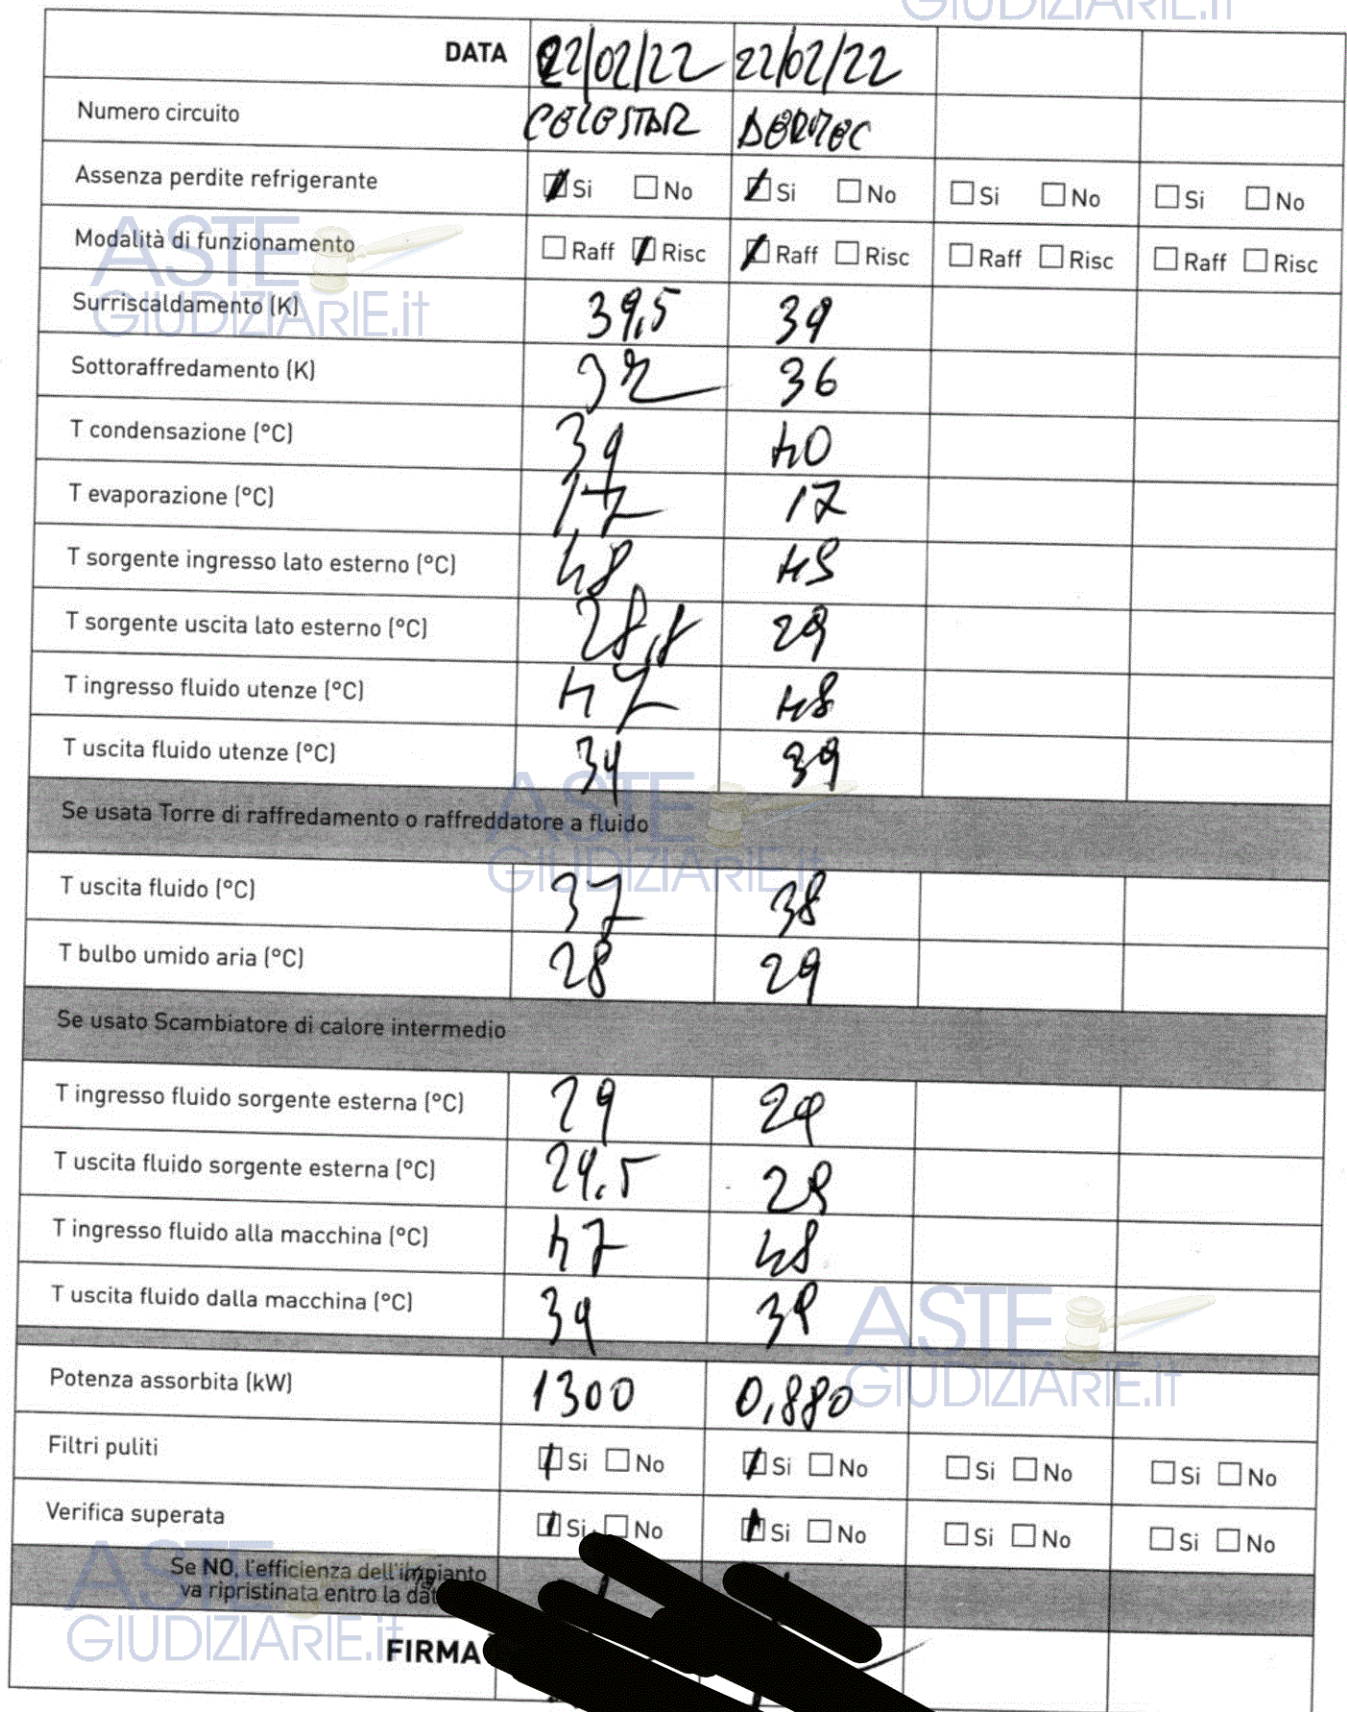 GIUDIZIARIE.it
DATA 22/02/22 22/02/22
Numero circuito CELESTAR
Assenza perdite refrigerante Si No Si No Si No Si No
Modalità di funzionamento Raff Risc Raff Risc Raff Risc Raff Risc
ASTE
GIUDIZIARIE.it
Surriscaldamento (K) 39,5 39
Sottoraffredamento (K) 32 36
T condensazione (°C) 39 40
T evaporazione (°C) 17 17
T sorgente ingresso lato esterno (°C) 48
T sorgente uscita lato esterno (°C) 28,8 29
T ingresso fluido utenze (°C) 47 48
T uscita fluido utenze (°C) 34 39
ASTE
GIUDIZIARIE.it
Se usata Torre di raffredamento o raffreddatore a fluido
T uscita fluido (°C) 37 38
T bulbo umido aria (°C) 28 29
Se usato Scambiatore di calore intermedio
T ingresso fluido sorgente esterna (°C) 29 29
T uscita fluido sorgente esterna (°C) 29,5
T ingresso fluido alla macchina (°C) 47 48
T uscita fluido dalla macchina (°C) 39
ASTE
GIUDIZIARIE.it
Potenza assorbita (kW) 1300 0,880
Filtri puliti Si No Si No Si No Si No
Verifica superata Si No Si No Si No Si No
ASTE
GIUDIZIARIE.it
Se NO, l'efficienza dell'impianto
va ripristinata entro la
FIRMA